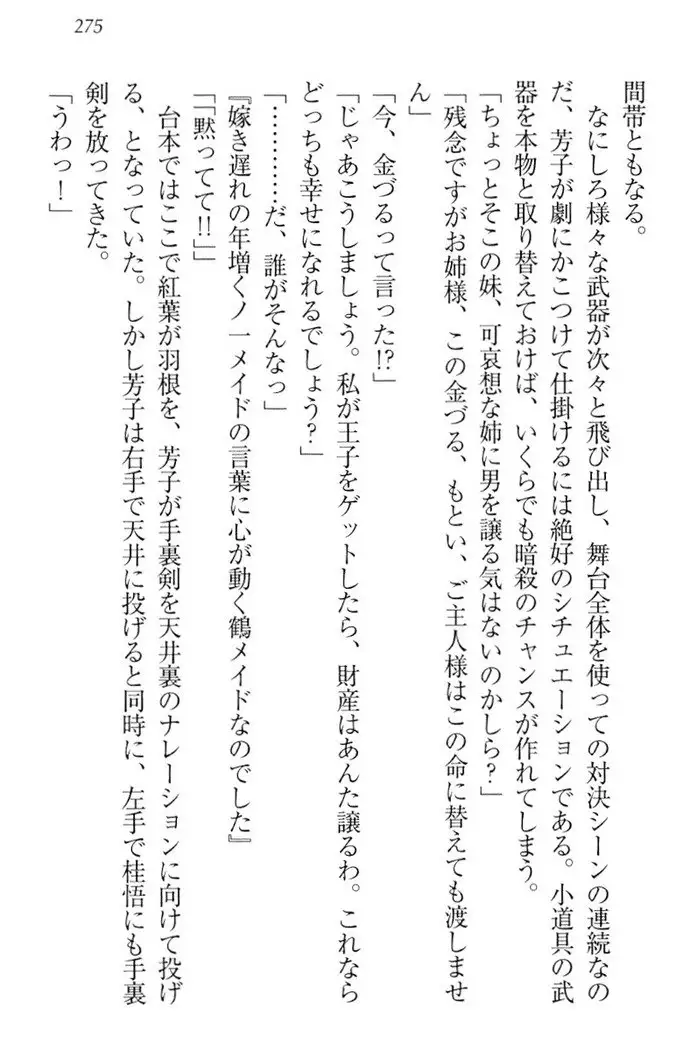 275
間帯ともなる。
　なにしろ様々な武器が次々と飛び出し、舞台全体を使っての対決シーンの連続なの
だ、芳子が劇にかこつけて仕掛けるには絶好のシチュエーションである。小道具の武
器を本物と取り替えておけば、いくらでも暗殺のチャンスが作れてしまう。
「ちょっとそこの妹、可哀想な姉に男を譲る気はないのかしら？」
「残念ですがお姉様、この金づる、もとい、ご主人様はこの命に替えても渡しませ
ん」
「今、金づるって言った!?」
「じゃあこうしましょう。私が王子をゲットしたら、財産はあんた譲るわ。これなら
どっちも幸せになれるでしょう？」
「…………だ、誰がそんなっ」
『嫁き遅れの年増くノ一メイドの言葉に心が動く鶴メイドなのでした』
「「黙ってて!!」
　台本ではここで紅葉が羽根を、芳子が手裏剣を天井裏のナレーションに向けて投げ
る、となっていた。しかし芳子は右手で天井に投げると同時に、左手で桂悟にも手裏
剣を放ってきた。
「うわっ！」